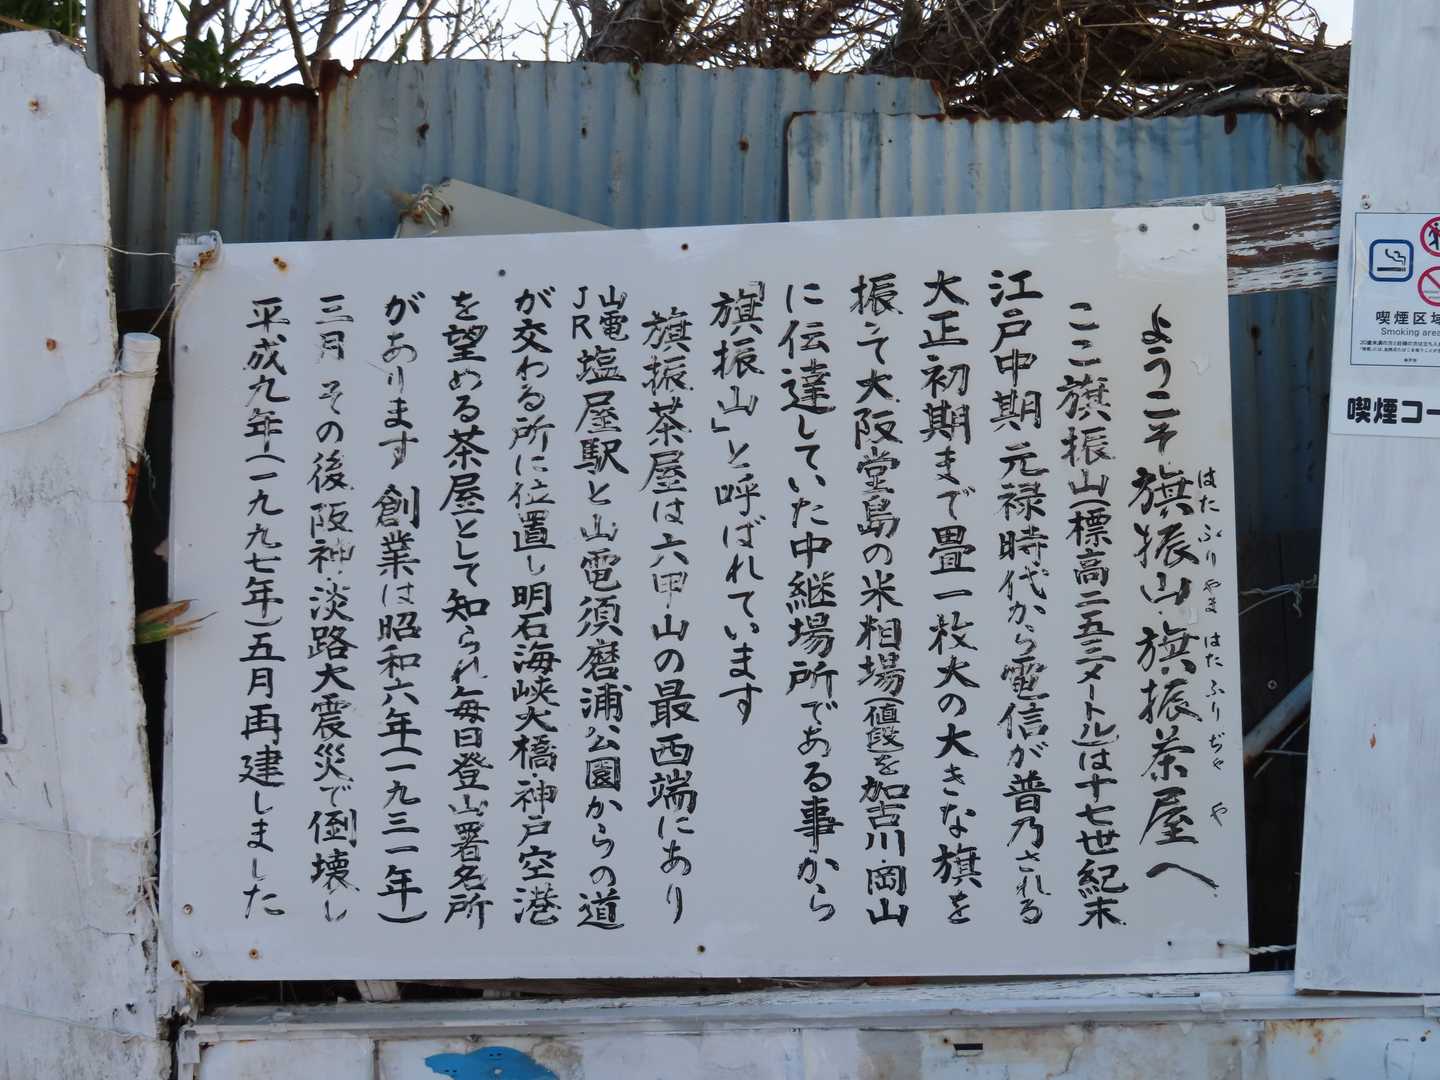 ようこそ旗振山・旗振茶屋へ
はたふりやま はたふりぢゃや
ここ旗振山(標高二五三メートル)は十七世紀末
江戸中期 元禄時代から電信が普乃される
大正初期まで畳一枚大の大きな旗を
振って大阪堂島の米相場(値段)を加古川・岡山
に伝達していた中継場所である事から
「旗振山」と呼ばれています
旗振茶屋は六甲山の最西端にあり
山電JR塩屋駅と山電須磨浦公園からの道
が交わる所に位置し明石海峡大橋・神戸空港
を望める茶屋として知られ毎日登山署名所
があります 創業は昭和六年(一九三一年)
三月 その後阪神・淡路大震災で倒壊し
平成九年(一九九七年)五月再建しました
喫煙区域
Smoking area
喫煙コー